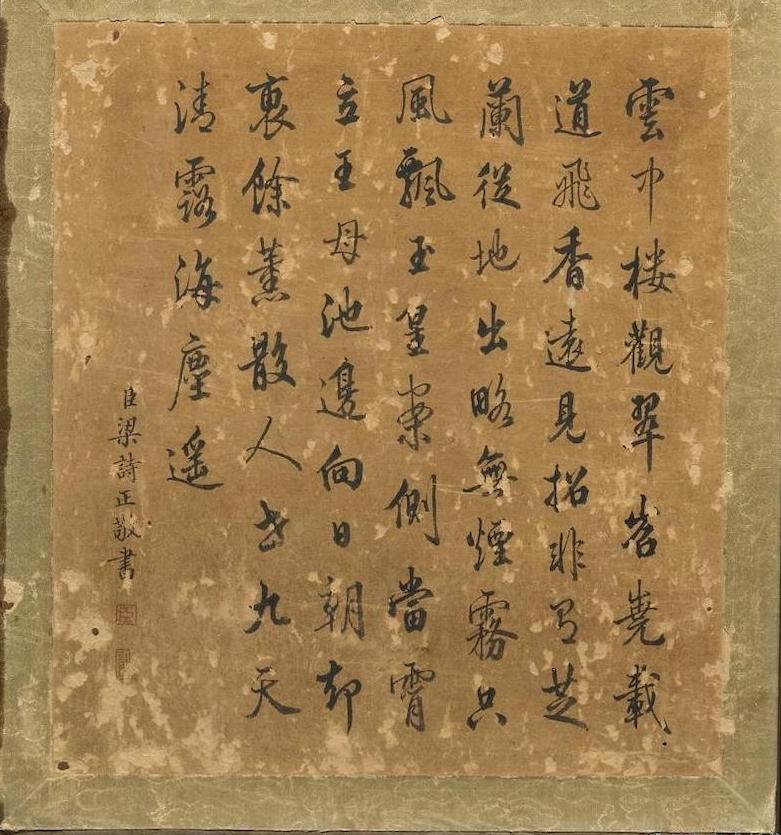 雲中樓觀翠岧嶤載
道飛香遠見招非有芝
蘭從地出略無煙霧只
風飄玉皇案側當霄
立王母池邊向日朝却
裏餘薰散人世九天
清露海塵遥
臣梁詩正敬書